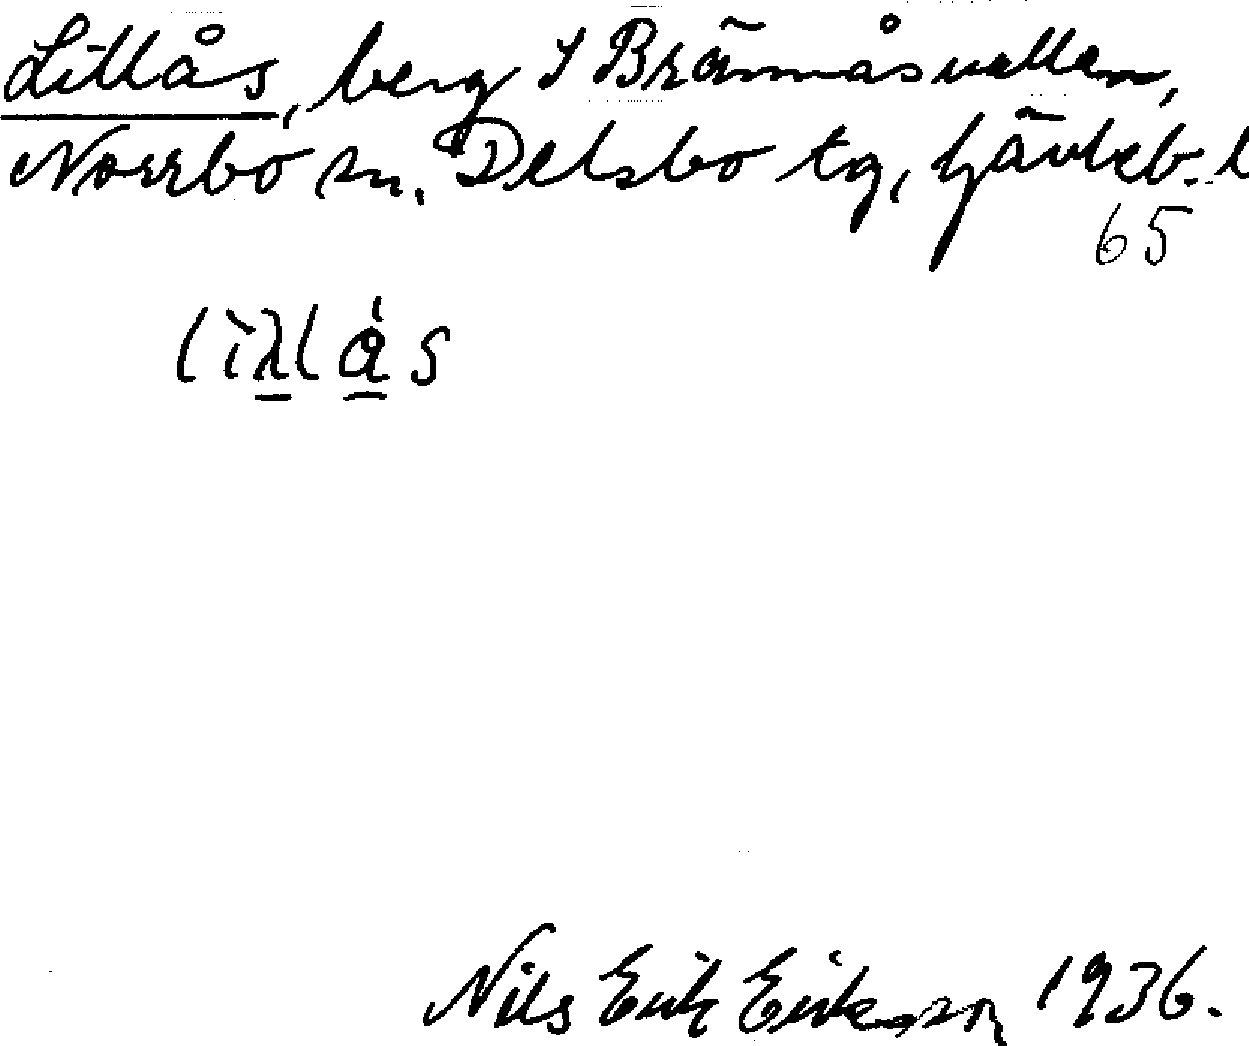 Lillås, berg S Brännåsvallen,
Norrbo sn. Delsbo tg, Gävleb. l
65
Nils Erik Eriksson 1936.